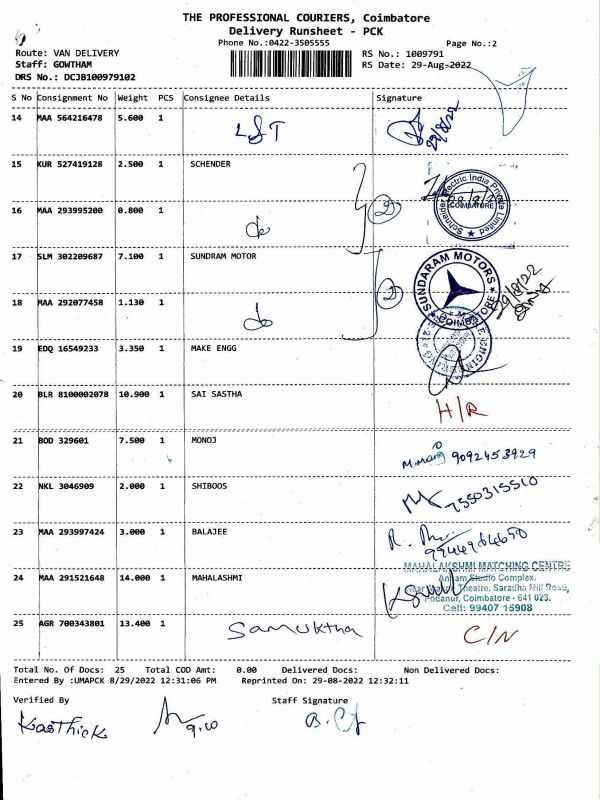 THE PROFESSIONAL COURIERS, Coimbatore
Delivery Runsheet - PCK
Phone No.:0422-3505555
Page No.:2
Route: VAN DELIVERY
RS No.: 1009791
Staff: GOWTHAM
RS Date: 29-Aug-2022
DRS No.: DCJB100979102
S No Consignment No Weight PCS Consignee Details Signature
14 MAA 564216478 5.600 1 L&T 29/8/22
15 KUR 527419128 2.500 1 SCHENDER
Schneider Electric India Private Limited
COIMBATORE
16 MAA 293995200 0.800 1 do 2
17 SLM 302209687 7.100 1 SUNDRAM MOTOR
SUNDARAM MOTORS
COIMBATORE
29/8/22
18 MAA 292077458 1.130 1 do 2
19 EDQ 16549233 3.350 1 MAKE ENGG
20 BLR 8100002078 10.900 1 SAI SASTHA H/R
21 BOD 329601 7.500 1 MONOJ 9092453929
22 NKL 3046909 2.000 1 SHIBOOS 7550315510
23 MAA 293997424 3.000 1 BALAJEE
24 MAA 291521648 14.000 1 MAHALASHMI
MAHALAKSHMI MATCHING CENTRE
Studio Complex.
Theatre, Saradha Mill Road,
Podanur, Coimbatore - 641 023.
Cell: 99407 15908
25 AGR 700343801 13.400 1 Samuktha C/N
Total No. Of Docs: 25 Total COD Amt: 0.00 Delivered Docs: Non Delivered Docs:
Entered By :UMAPCK 8/29/2022 12:31:06 PM Reprinted On: 29-08-2022 12:32:11
Verified By Staff Signature
Karthick